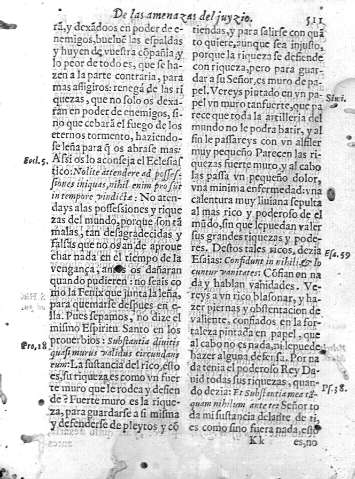 De las amenazas del juyzio. 511
rà, y dexãdos en poder de e-
nemigos, buelue las espaldas
y huyen de vuestra cõpañia, y
lo peor de todo es, que se ha-
zen a la parte contraria, para
mas afligiros: renegà de las ri
quezas, que no solo os dexa-
rán en poder de enemigos, si-
no que cebarà el fuego de los
eternos tormento, haziendo-
se leña para q̃ os abrase mas:
Assi os lo aconseja el Eclesias
tico: Nolite attendere ad posses-
siones iniquas, nihil enim prosũt
in tempore vindictæ: No aten-
days a las possessiones y rique
zas del mundo, porque son tã
malas, tan desagradecidas y
falsas que no os an de aproue
char nada en el tiempo de la
vengança, antes os dañaran
quando pudieren: no seais co
mo la Fenix que junta la leña,
para quemarse despues en e-
lla. Pues sepamos, no dize el
mismo Espiritu Santo en los
prouerbios: Substantia diuitis
quasi murus validus circundans
eum: La sustancia del rico, esto
es, su riqueza es como vn fuer
te muro que le rodea y defien
de? Fuerte muro es la rique-
za, para guardarse a si misma
y defenderse de pleytos y cõ
Eccl. 5.
Pro, 18
tiendas, y para salirse con quã
to quiere, aunque sea injusto,
porque la riqueza se defiende
con riqueza, pero para guar-
dar a su Señor, es muro de pa-
pel. Vereys pintado en vn pa-
pel vn muro tan fuerte, que pa
rece que toda la artilleria del
mundo no le podra batir, y al
fin le passareys con vn alfiler
muy pequeño Parecen las ri-
quezas fuerte muro, y al cabo
las passa vn pequeño dolor,
vna minima enfermedad: vna
calentura muy liuiana sepulta
al mas rico y poderoso del
mũdo, sin que le puedan valer
sus grandes riquezas y pode-
res. Destos tales ricos, dezia
Esaias: Confidunt in nihili, & lo
cuntur vanitates: Cõfian en na
da y hablan vanidades. Ve-
reys a vn rico blasonar, y ha-
zer piernas y obstentacion de
valiente, confiados en la for-
taleza pintada en papel, que
al cabo no es nada, ni le puede
hazer alguna defensa. Por na
da tenia el poderoso Rey Da-
uid todas sus riquezas, quan-
do dezia: Et Substantia mea tã-
quam nihilum ante te: Señor to
da mi sustancia delante de ti,
es como sino fuera nada, esto
Simi.
Esa. 59
Ps. 38.
Kk es, no